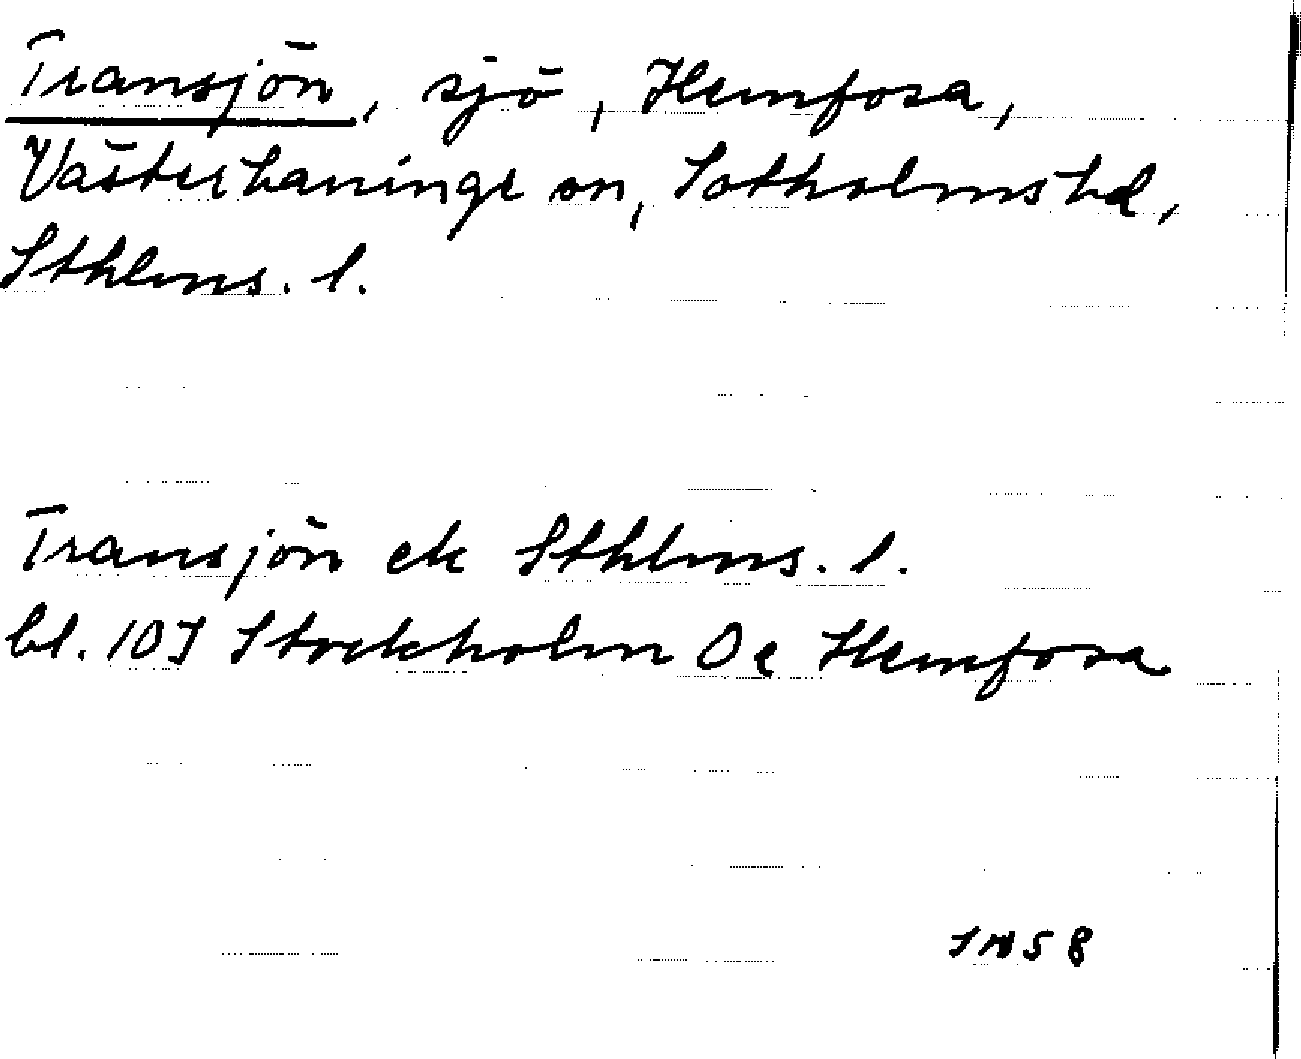 Transjön, sjö, Hemfosa,
Västerhaninge sn, Sotholms hd,
Sthlms. l.
Transjön ek Sthlms. l.
bl. 10I Stockholm
Hemfosa